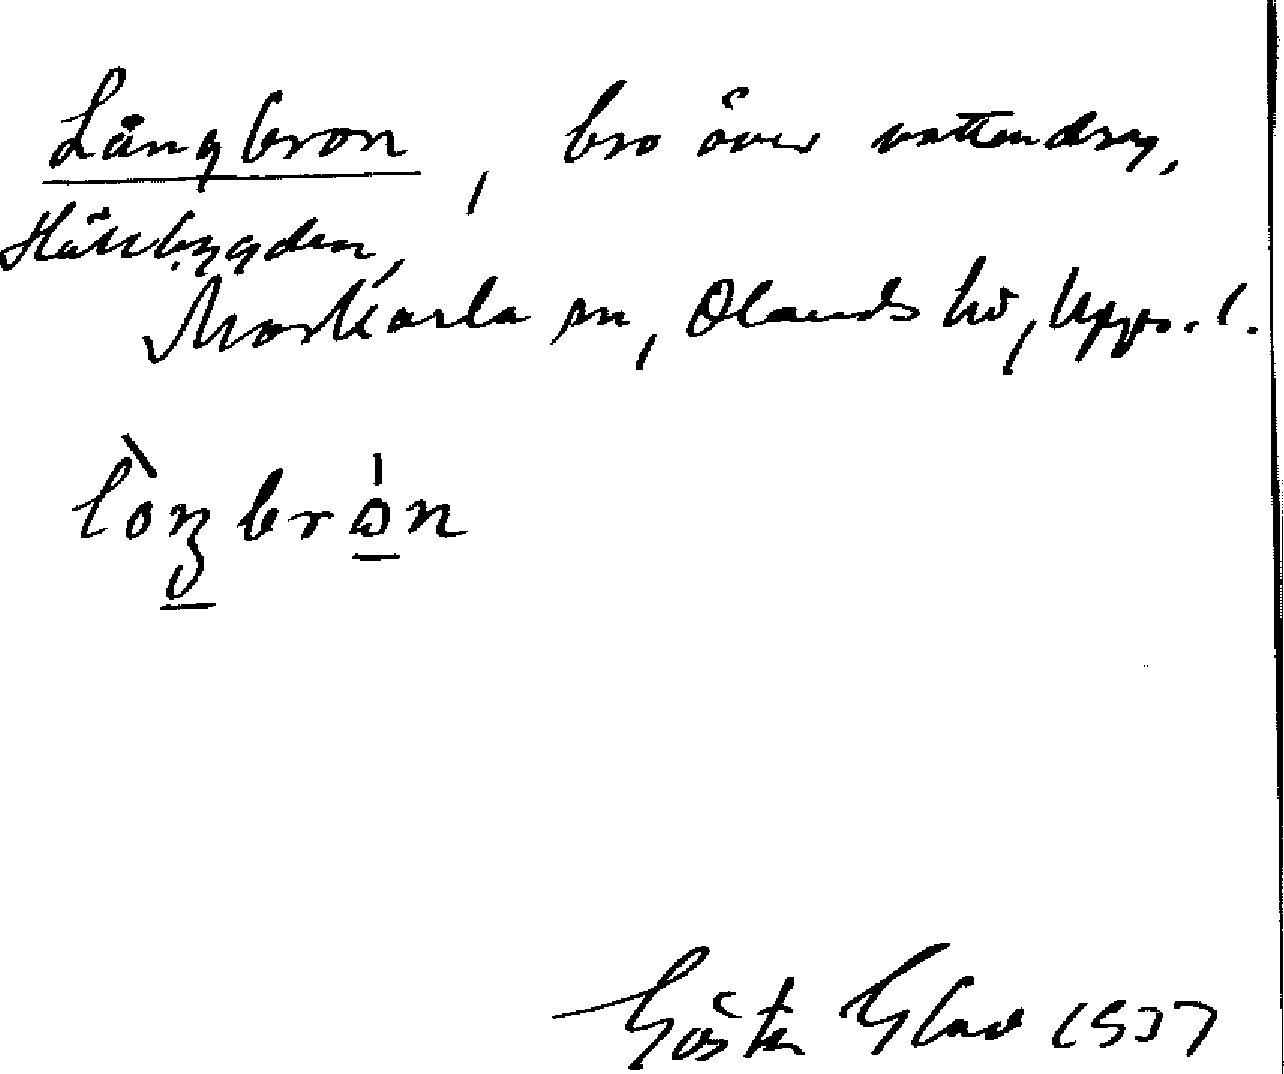 Långbron, bro över vattendrag,
Hättsbygden,
Morkarla sn, Olands hd, Upps. l.
Gösta Glad 1937